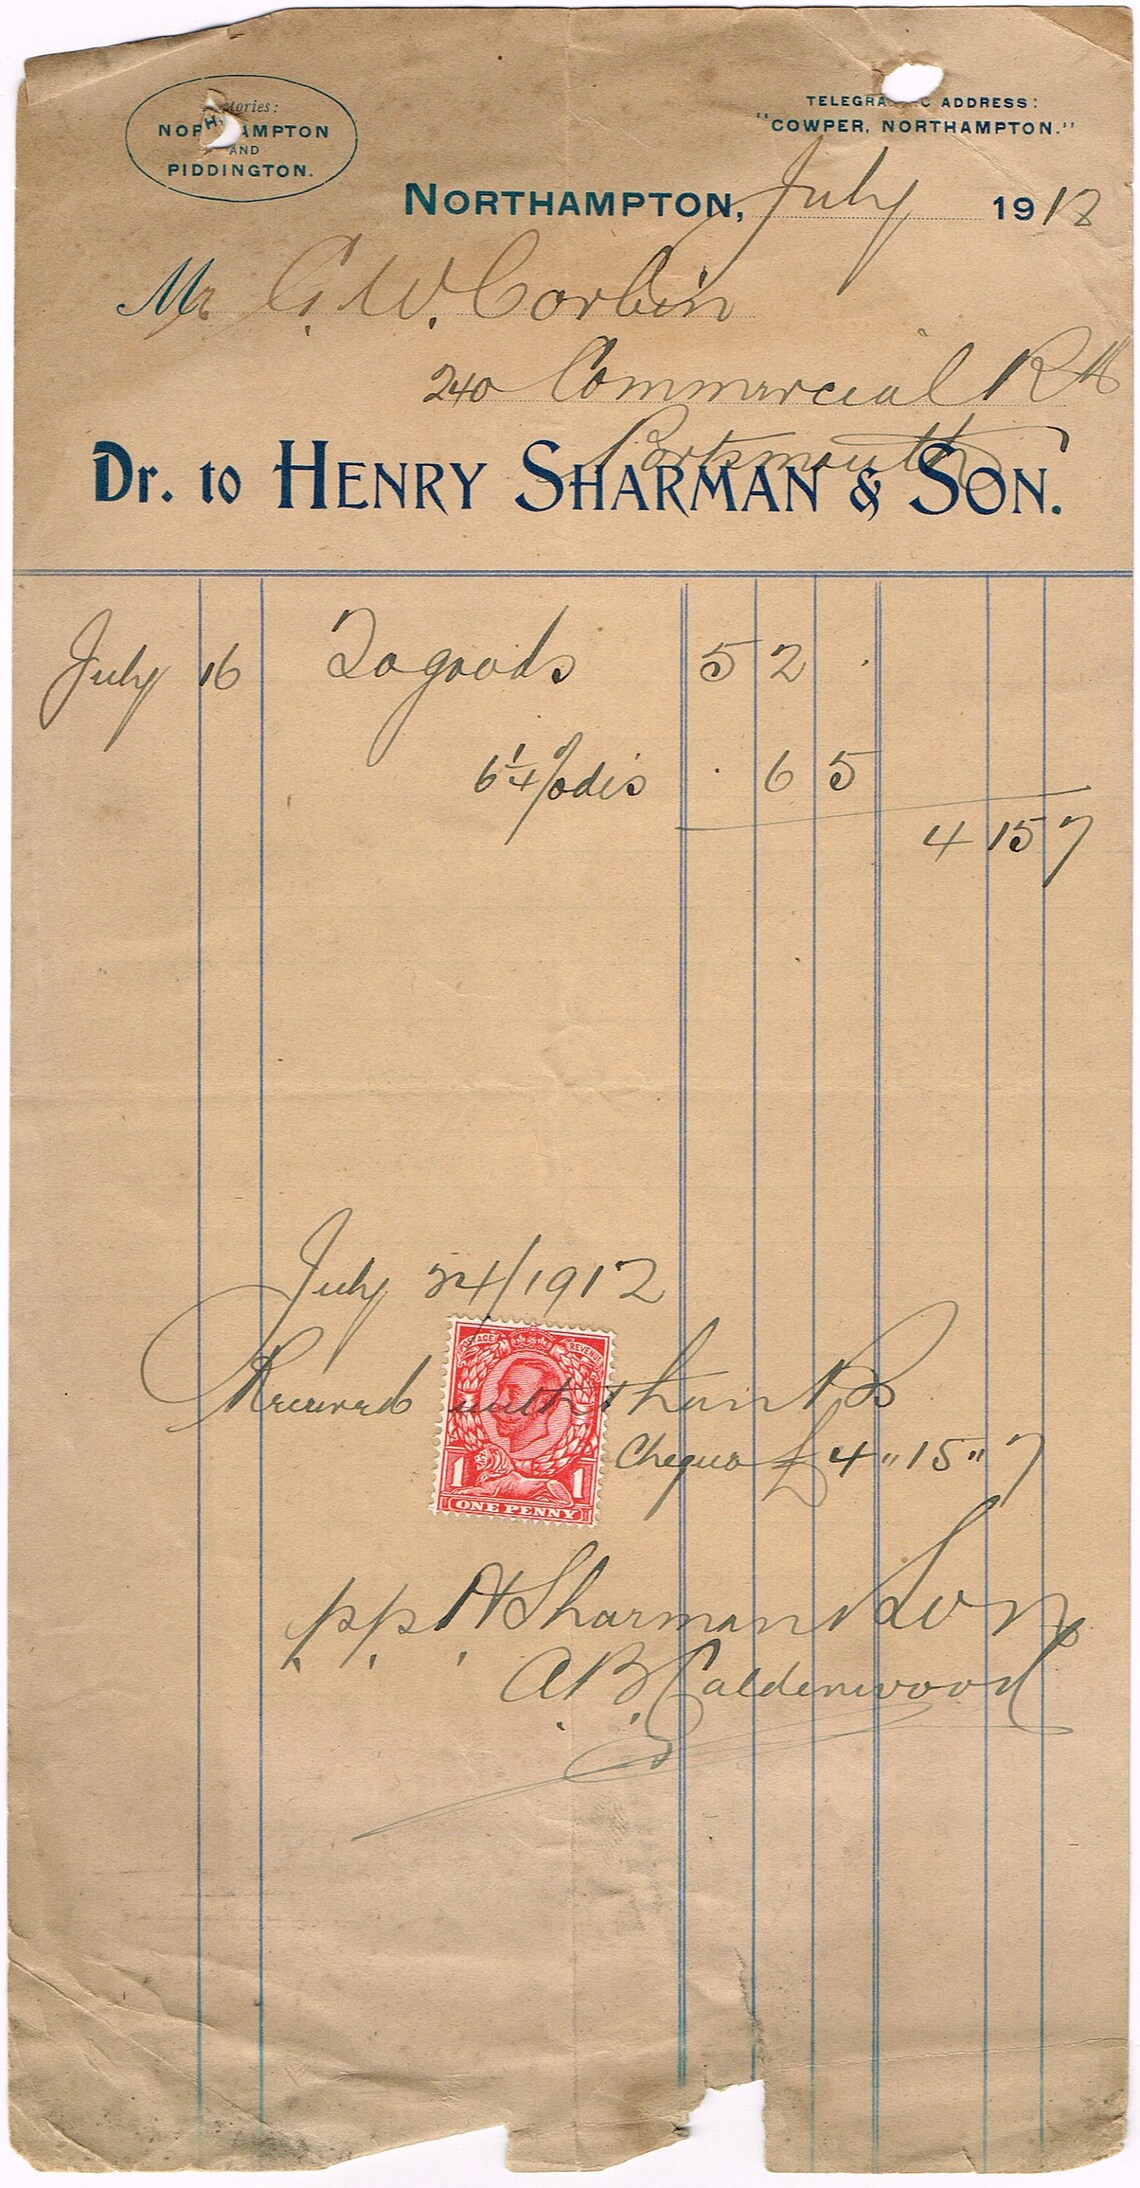 Factories:
NORTHAMPTON
AND
PIDDINGTON.
TELEGRAPHIC ADDRESS:
"COWPER, NORTHAMPTON."
NORTHAMPTON, July 1912
Mr G. W. Corbin
240 Commercial Rd
Portsmouth
Dr. to HENRY SHARMAN & SON.
July 16 To goods 5 2 .
6¼% dis . 6 5
4 15 7
July 24/1912
Received with thanks
Cheque £4"15"7
POSTAGE REVENUE
1 1
ONE PENNY
p.p. H Sharman & Son
A. B. Calderwood